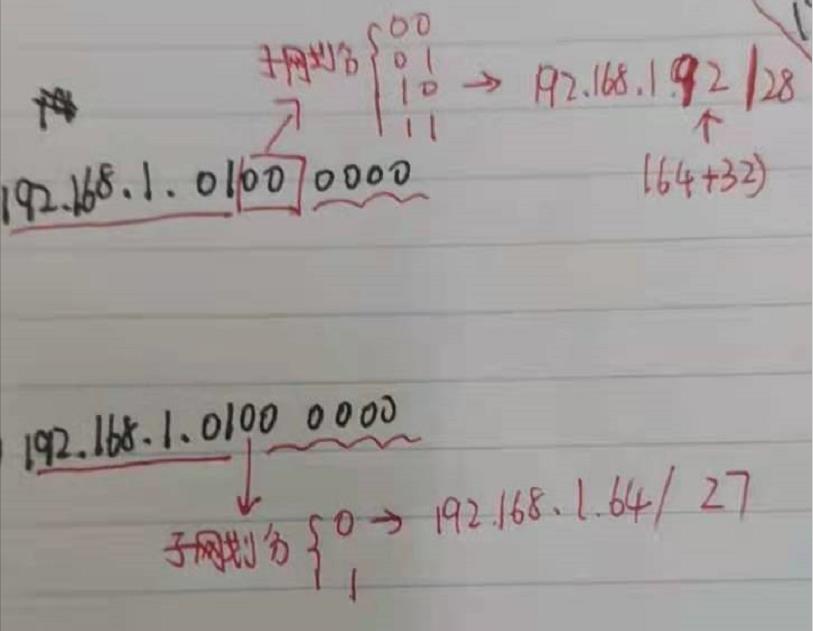 子网划分 { 00
01
10 → 192.168.1.92 /28
11
↑
192.168.1.0100 0000
(64+32)
192.168.1.0100 0000
子网划分 { 0 → 192.168.1.64/ 27
1